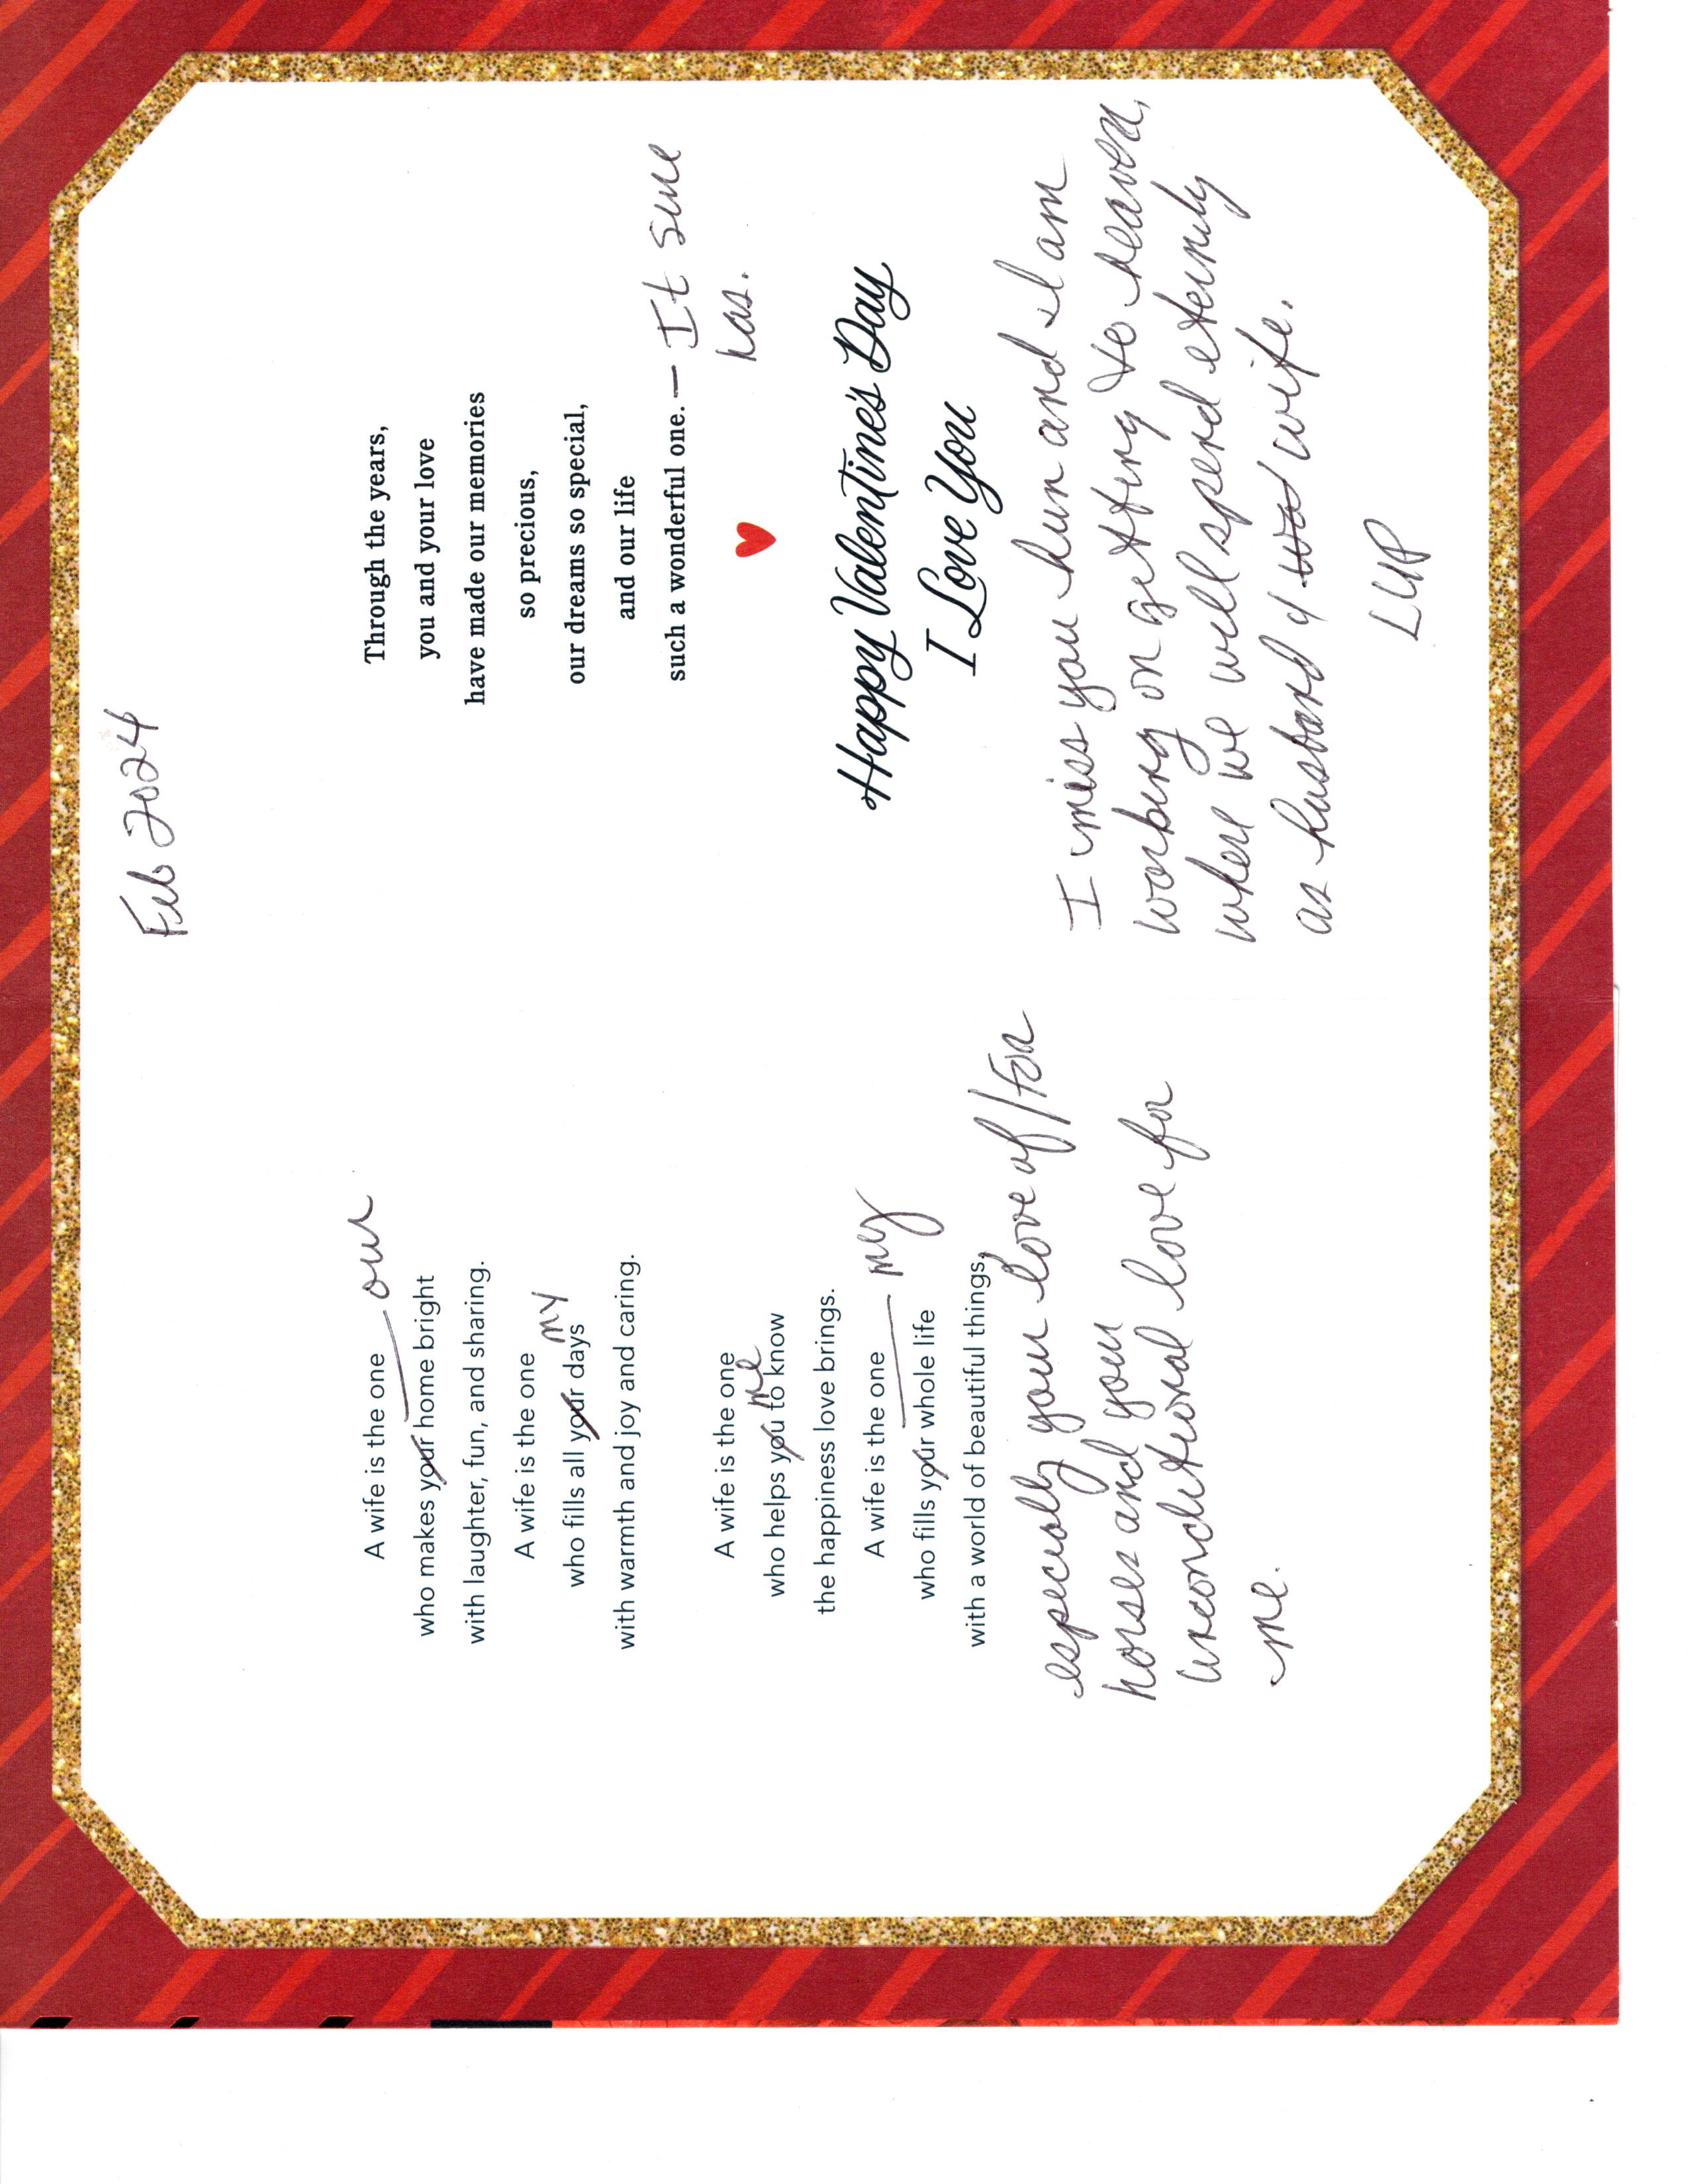 Feb 2024
A wife is the one
who makes your our home bright
with laughter, fun, and sharing.
A wife is the one
who fills all your my days
with warmth and joy and caring.
A wife is the one
who helps you me to know
the happiness love brings.
A wife is the one
who fills your my whole life
with a world of beautiful things,
especially your love of/for
horses and your
unconditional love for
me.
Through the years,
you and your love
have made our memories
so precious,
our dreams so special,
and our life
such a wonderful one. — It sure
has.
Happy Valentine's Day
I Love You
I miss you hun and I am
working on getting to heaven,
where we will spend eternity
as husband & wife.
LUP